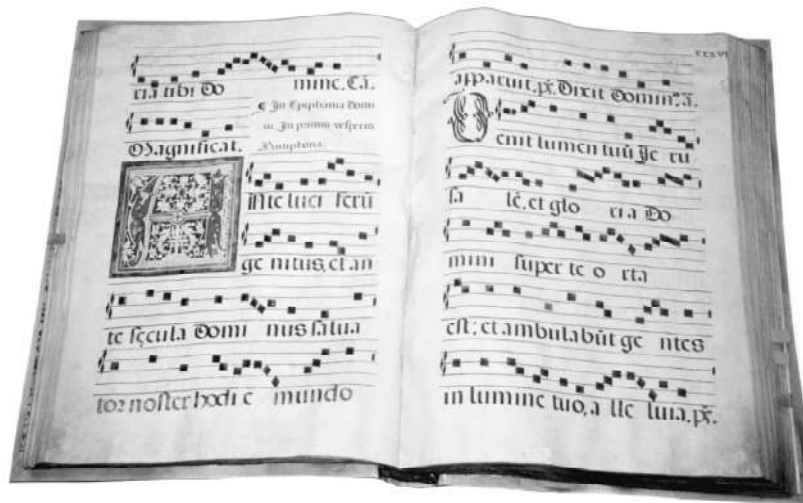 ria tibi Do minc. Cā.
¶ In Epiphania domi
ni. In primis vesperis
Magnificat. Antiphona.
Ante luci ferū
ge nitus, et an
te sęcula Domi nus salua
tor noster hodi e mundo
CCLVI
apparuit. p̄s. Dixit Domin⁹. ā.
Venit lumen tuū Je ru
sa lē, et glo ri a Do
mini super te o rta
est; et ambulabūt ge ntes
in lumine tuo, a lle luia. p̄s.